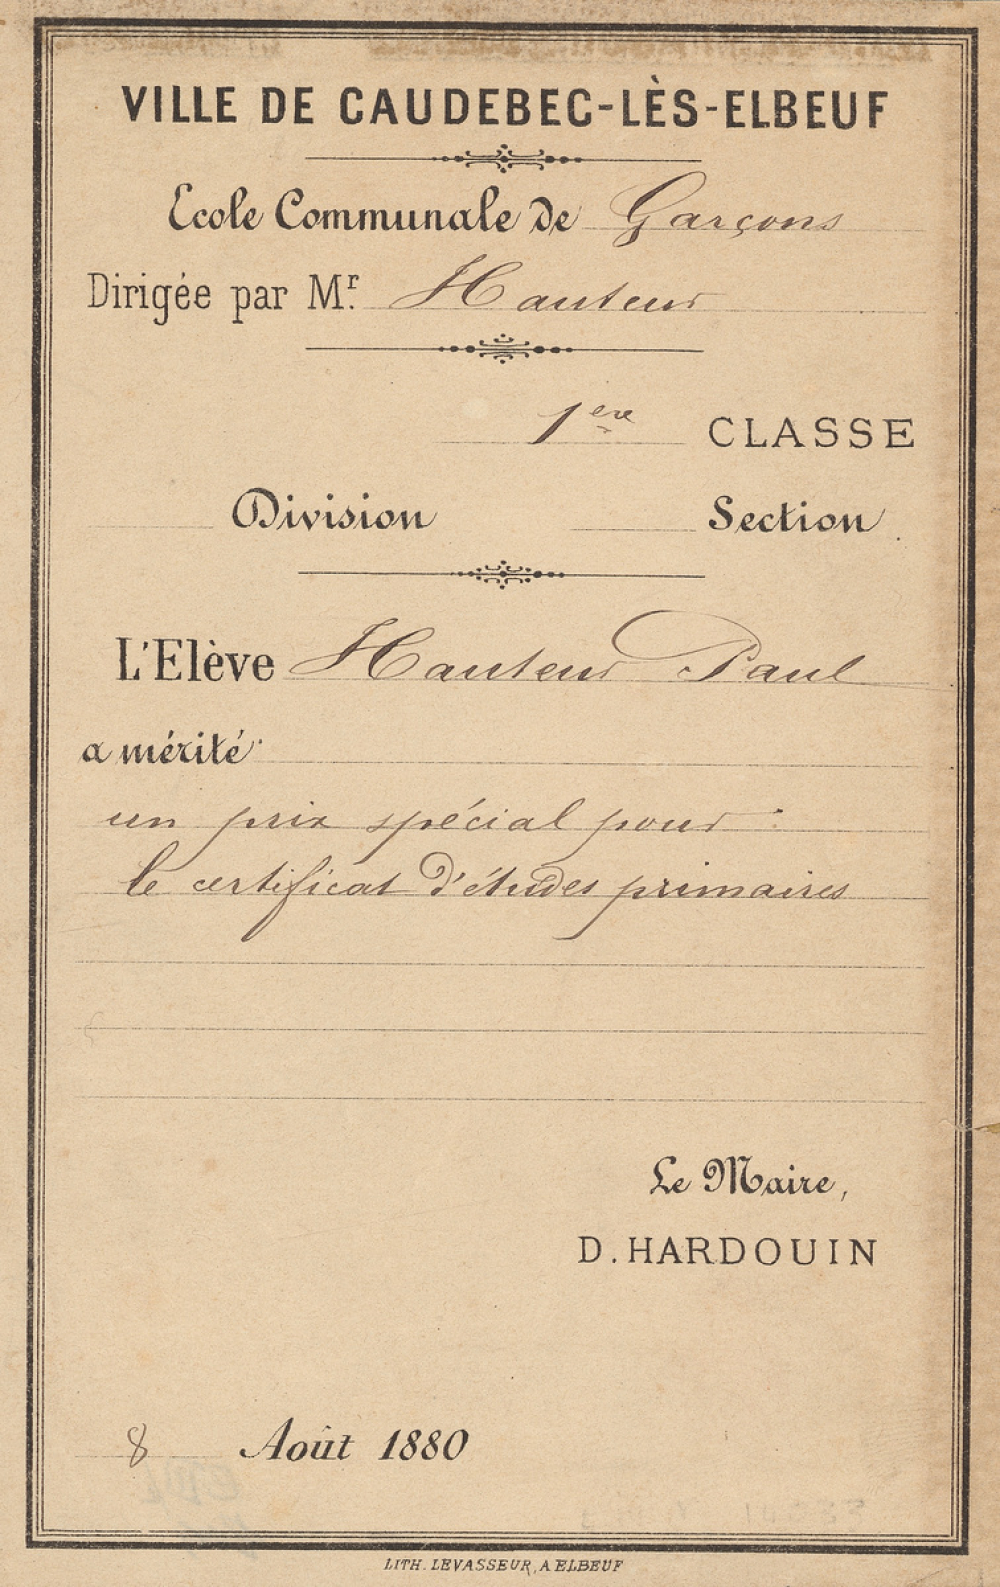 VILLE DE CAUDEBEC-LÈS-ELBEUF
Ecole Communale de Garçons
Dirigée par Mr. Hauteur
1ere CLASSE
Division Section
L'Elève Hauteur Paul
a mérité
un prix spécial pour :
le certificat d'études primaires
Le Maire,
D. HARDOUIN
8 Août 1880
LITH. LEVASSEUR, A ELBEUF